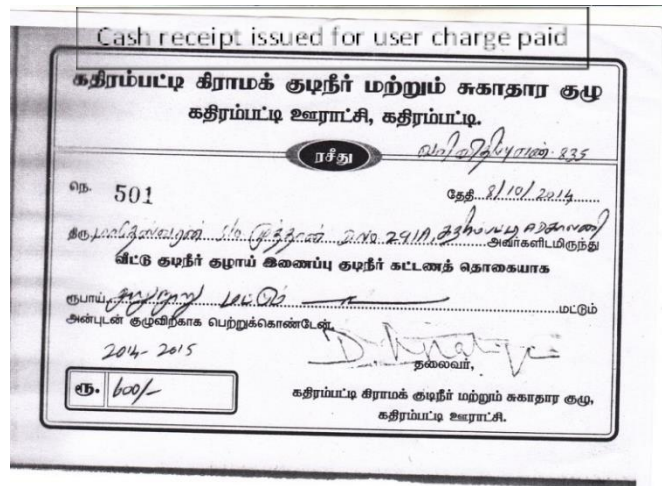 Cash receipt issued for user charge paid
கதிரம்பட்டி கிராமக் குடிநீர் மற்றும் சுகாதார குழு
கதிரம்பட்டி ஊராட்சி, கதிரம்பட்டி.
ரசீது
835
நெ. 501 தேதி 8/10/2014
திரு. S/o D.No 291A, அவர்களிடமிருந்து
வீட்டு குடிநீர் குழாய் இணைப்பு குடிநீர் கட்டணத் தொகையாக
ரூபாய் அறுநூறு மட்டும் மட்டும்
அன்புடன் குழுவிற்காக பெற்றுக்கொண்டேன்.
2014-2015
தலைவர்,
ரூ. 600/-
கதிரம்பட்டி கிராமக் குடிநீர் மற்றும் சுகாதார குழு,
கதிரம்பட்டி ஊராட்சி.